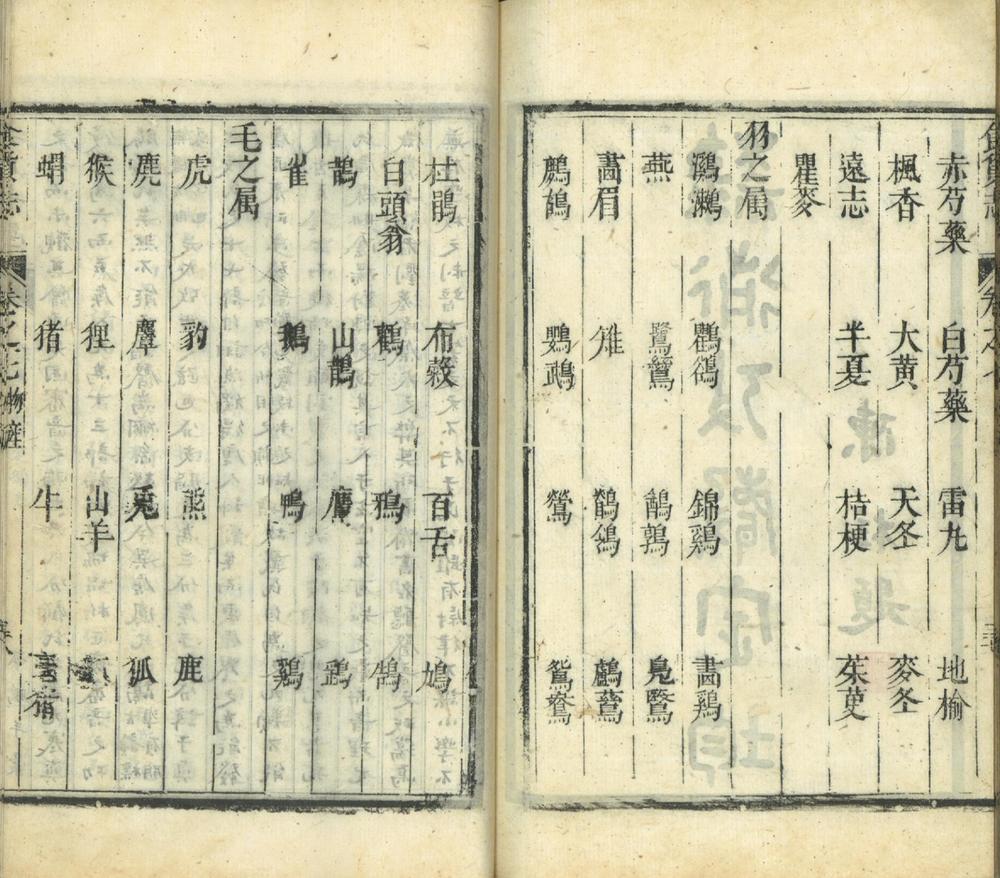 赤芍藥 白芍藥 雷丸 地榆
楓香 大黃 天冬 麥冬
遠志 半夏 桔梗 茱萸
瞿麥
羽之属
鸂鶒 鸜鵒 錦鷄 畵鷄
燕 鷺鷥 鵪鶉 鳧鷖
畵眉 雉 鶺鴒 鸕鶿
鷓鴣 鸚鵡 鶯 鴛鴦
杜鵑 布穀 百舌 鳩
白頭翁 鸛 鴉 鵠
鵲 山鵲 鷹
雀 鵝 鴨 鷄
毛之属
虎 豹 熊 鹿
麂 麞 兎 狐
猴 狸 山羊
蝟 猪 牛
食貨志 卷之七 物産